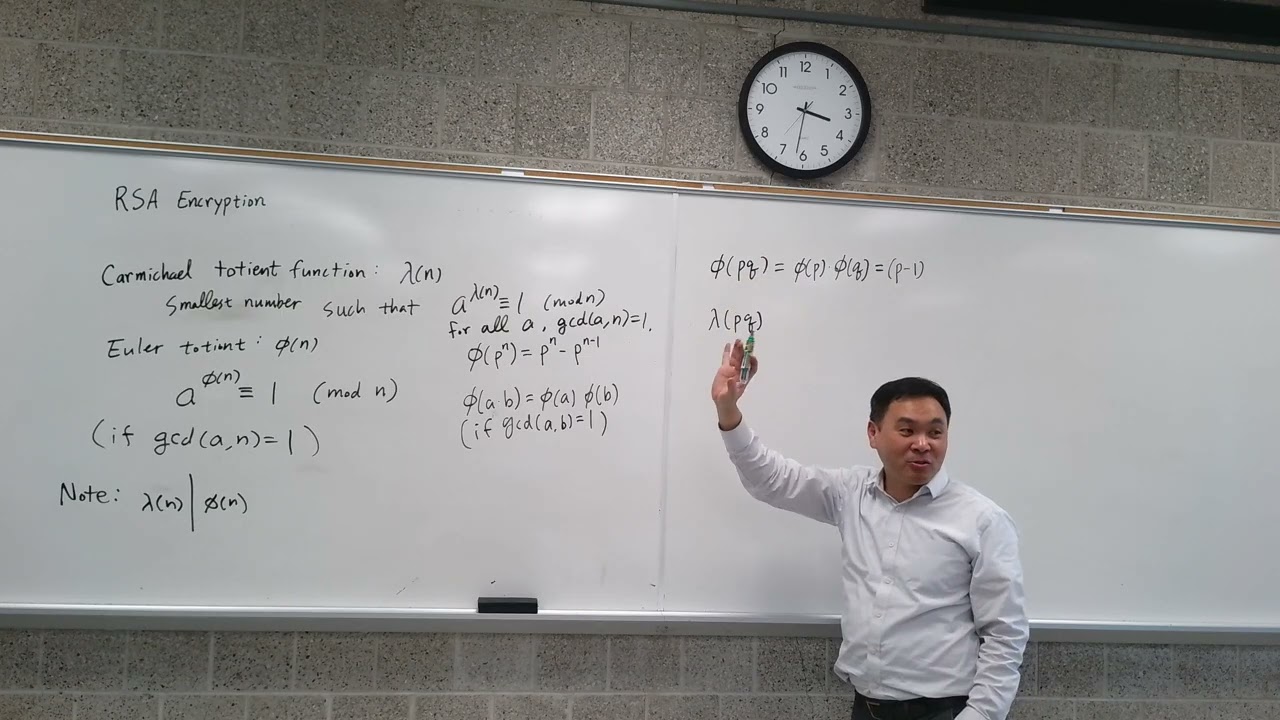 RSA Encryption
Carmichael totient function: λ(n)
Smallest number such that a^λ(n) ≡ 1 (mod n)
for all a, gcd(a,n)=1.
Euler totient: φ(n)
a^φ(n) ≡ 1 (mod n)
(if gcd(a,n)=1)
Note: λ(n) | φ(n)
φ(p^n) = p^n - p^n-1
φ(a·b) = φ(a) φ(b)
(if gcd(a,b)=1)
φ(pq) = φ(p)·φ(q) = (p-1)
λ(pq)
12
1
2
3
4
5
6
7
8
9
10
11